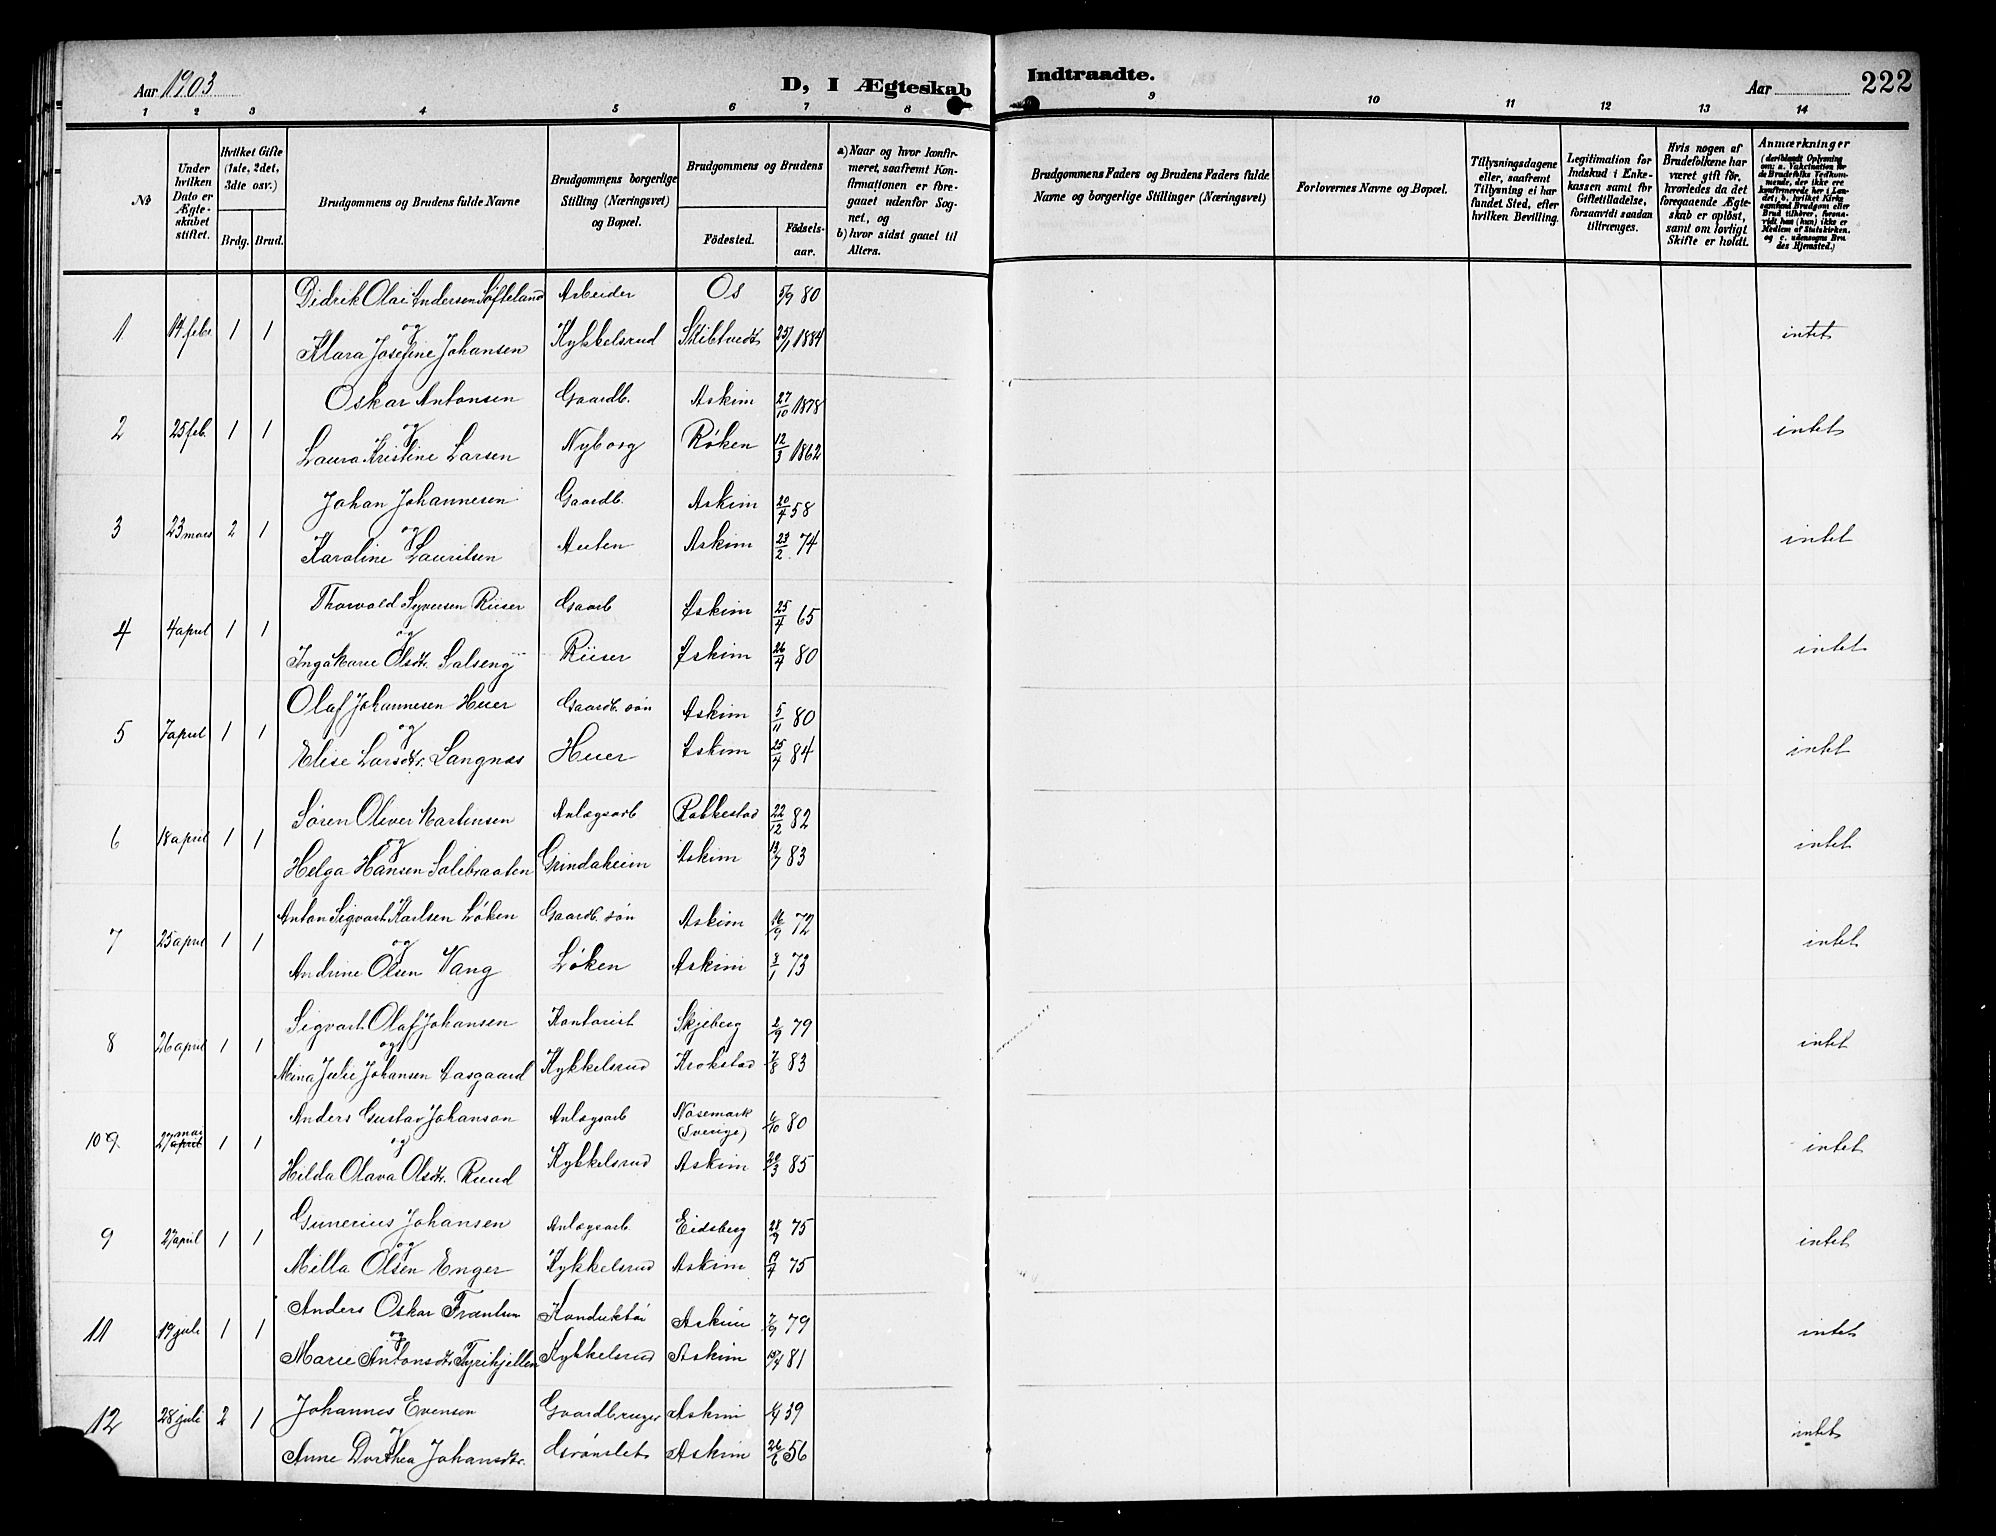 Aar 1903
D, I Ægteskab
Indtraadte.
Aar
222
1 2 3 4 5 6 7 8 9 10 11 12 13 14
No
Under hvilken Dato er Ægteskabet stiftet.
Hvilket Gifte (1ste, 2det, 3die osv.)
Brdg. Brud.
Brudgommens og Brudens fulde Navne
Brudgommens borgerlige Stilling (Næringsvei) og Bopæl.
Brudgommens og Brudens
Födested.
Födselsaar.
a) Naar og hvor konfirmeret, saafremt Konfirmationen er foregaaet udenfor Sognet, og
b) hvor sidst gaaet til Alters.
Brudgommens Faders og Brudens Faders fulde Navne og borgerlige Stillinger (Næringsvei)
Forlovernes Navne og Bopæl.
Tillysningsdagene eller, saafremt Tillysning ei har fundet Sted, efter hvilken Bevilling.
Legitimation for Indskud i Enkekassen samt for Giftetilladelse, forsaavidt saadan tiltrænges.
Hvis nogen af Brudefolkene har været gift før, hvorledes da det foregaaende Ægteskab er oplöst, samt om lovligt Skifte er holdt.
Anmærkninger (deriblandt Oplysning om: a. Vakcination for de Brudefolks Vedkommende, der ikke ere konfirmerede her i Landet; b. hvilket Kirkesamfund Brudgom eller Brud tilhører, forsavidt han (hun) ikke er Medlem af Statskirken. og c. udensogns Brudes Hjemsted.)
Didrik Olai Andersen Søfteland Arbeider Os 5/9 80
1 14 febr 1 1 og intet
Klara Josefine Johansen Kykkelsrud Skibtvedt 25/1 1884
Oskar Antonsen Gaardb. Askim 27/10 1878
2 25 feb. 1 1 og intet
Laura Kristine Larsen Nyborg Røken 12/3 1862
Johan Johannesen Gaardb. Askim 20/4 58
3 23 mars 2 1 og intet
Karoline Lauritsen Auten Askim 23/2 74
Thorvald Syversen Riiser Gaarb Askim 25/4 65
4 4 april 1 1 og intet
Inga Marie Olsdtr. Salseng Riiser Askim 26/4 80
Olaf Johannesen Huer Gaardb. søn Askim 5/11 80
5 7 april 1 1 og intet
Elise Larsdtr. Langnæs Huer Askim 25/4 84
Søren Oliver Martinsen Anlægsarb Rakkestad 22/12 82
6 18 april 1 1 og intet
Helga Hansen Salebraaten Grindaheim Askim 83
Anton Sigvart Karlsen Løken Gaardb. søn Askim 16/9 72
7 25 april 1 1 og intet
Andrine Olsen Vang Løken Askim 8/1 73
Sigvart Olaf Johansen Kontorist Skjeberg 2/9 79
8 26 april 1 1 og intet
Mina Julie Johansen Aasgaard Kykkelsrud Krokstad 7/8 83
Anders Gustav Johanson Anlægsarb Nösemark (Sverige) 6/10 80
10 9. 27 mai april 1 1 og intet
Hilda Olava Olsdtr. Ruud Kykkelsrud Askim 20/3 85
Gunerius Johansen Anlægsarb. Eidsberg 28/9 75
9 27 april 1 1 og intet
Milla Olsen Enger Kykkelsrud Askim 19/4 75
Anders Oskar Frantsen Konduktør Askim 7/9 79
11 19 juli 1 1 og intet
Marie Antonsdtr Tyrihjellen Kykkelsrud Askim 81
Johannes Evensen Gaardbruger Askim 39
12 28 juli 2 1 og intet
Anne Dorthea Johansdtr. Grønslet Askim 26/6 56